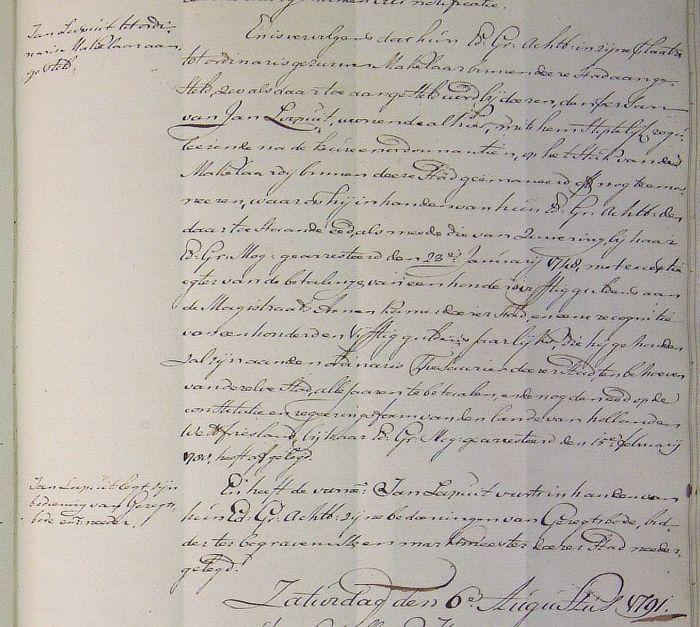 notificatie.
Jan Leepuit tot ordi-
naris Makelaar aan
gesteld
En is vervolgens door hun Ed. Gr. Achtb: in zijne plaats
tot ordinaris gezworen Makelaar binnen deeze Stad aange-
steld, zo als daar toe aangesteld word bij deezen, de persoon
van Jan Leepuit, woonende alhier, mits hem stiptelijk regu-
leerende na de keure en ordonnantien, op het stuk van de
Makelaardij binnen deeze Stad geëmaneerd off nog te ema-
neeren, waar op hij in handen van hun Ed. Gr. Achtb: den
daar toe staande eed, als meede die van Zuivering, bij haar
Ed. Gr. Mog: gearresteerd den 28e Januarij 1748, mits
egter van de betaling van een honderd vijfftig guldens aan
de Magistraats Armen kamer deezer Stad, en eene recognitie
van een honderd en vijfftig guldens jaarlijks, die hij gehouden
zal zijn aan den ordinaris Thesaurie deezer Stad, ten behoeve
van dezelve Stad, alle jaaren te betaalen, ende nog den eed op de
constitutie en regeeringsform van den lande van Hollanden
Westfriesland, bij haar Ed. Gr. Mog: gearresteerd den 15e februarij
1788, heeft afgelegd.
Jan Leepuit legt zijn
bediening van Geregts
bode enz: neder.
En heeft de voorn: Jan Leepuit voorts in handen van
hun Ed. Gr. Achtb: zijne bedieningen van Geregtsbode, bid-
der ter begravenisse en marktmeester deezer Stad neder-
gelegd.
Saturdag den 6e Augustus 1791.